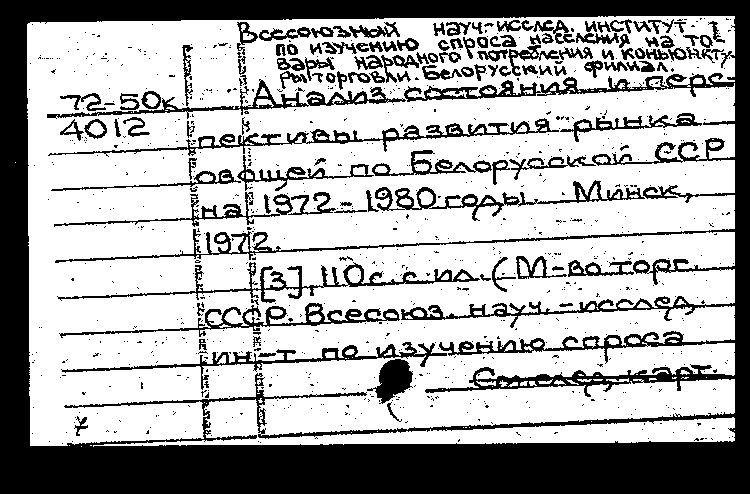 Всесоюзный науч.-исслед. институт
по изучению спроса населения на то-
вары народного потребления и конъюнкту-
ры торговли. Белорусский филиал.
72-50к Анализ состояния и перс-
4012 пективы развития рынка
овощей по Белорусской ССР
на 1972-1980 годы. Минск,
1972.
[3], 110 с. с ил. (М-во торг.
СССР. Всесоюз. науч.-исслед.
ин-т по изучению спроса
См. след. карт.